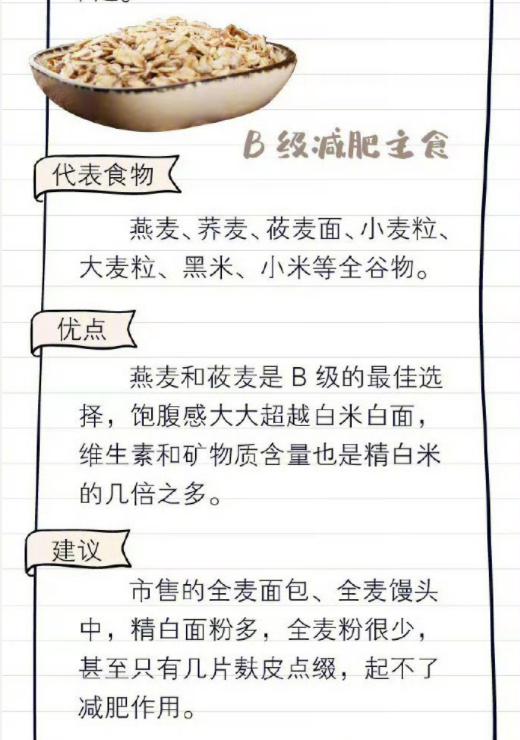 B 级减肥主食
代表食物
燕麦、荞麦、莜麦面、小麦粒、
大麦粒、黑米、小米等全谷物。
优点
燕麦和莜麦是 B 级的最佳选
择，饱腹感大大超越白米白面，
维生素和矿物质含量也是精白米
的几倍之多。
建议
市售的全麦面包、全麦馒头
中，精白面粉多，全麦粉很少，
甚至只有几片麸皮点缀，起不了
减肥作用。